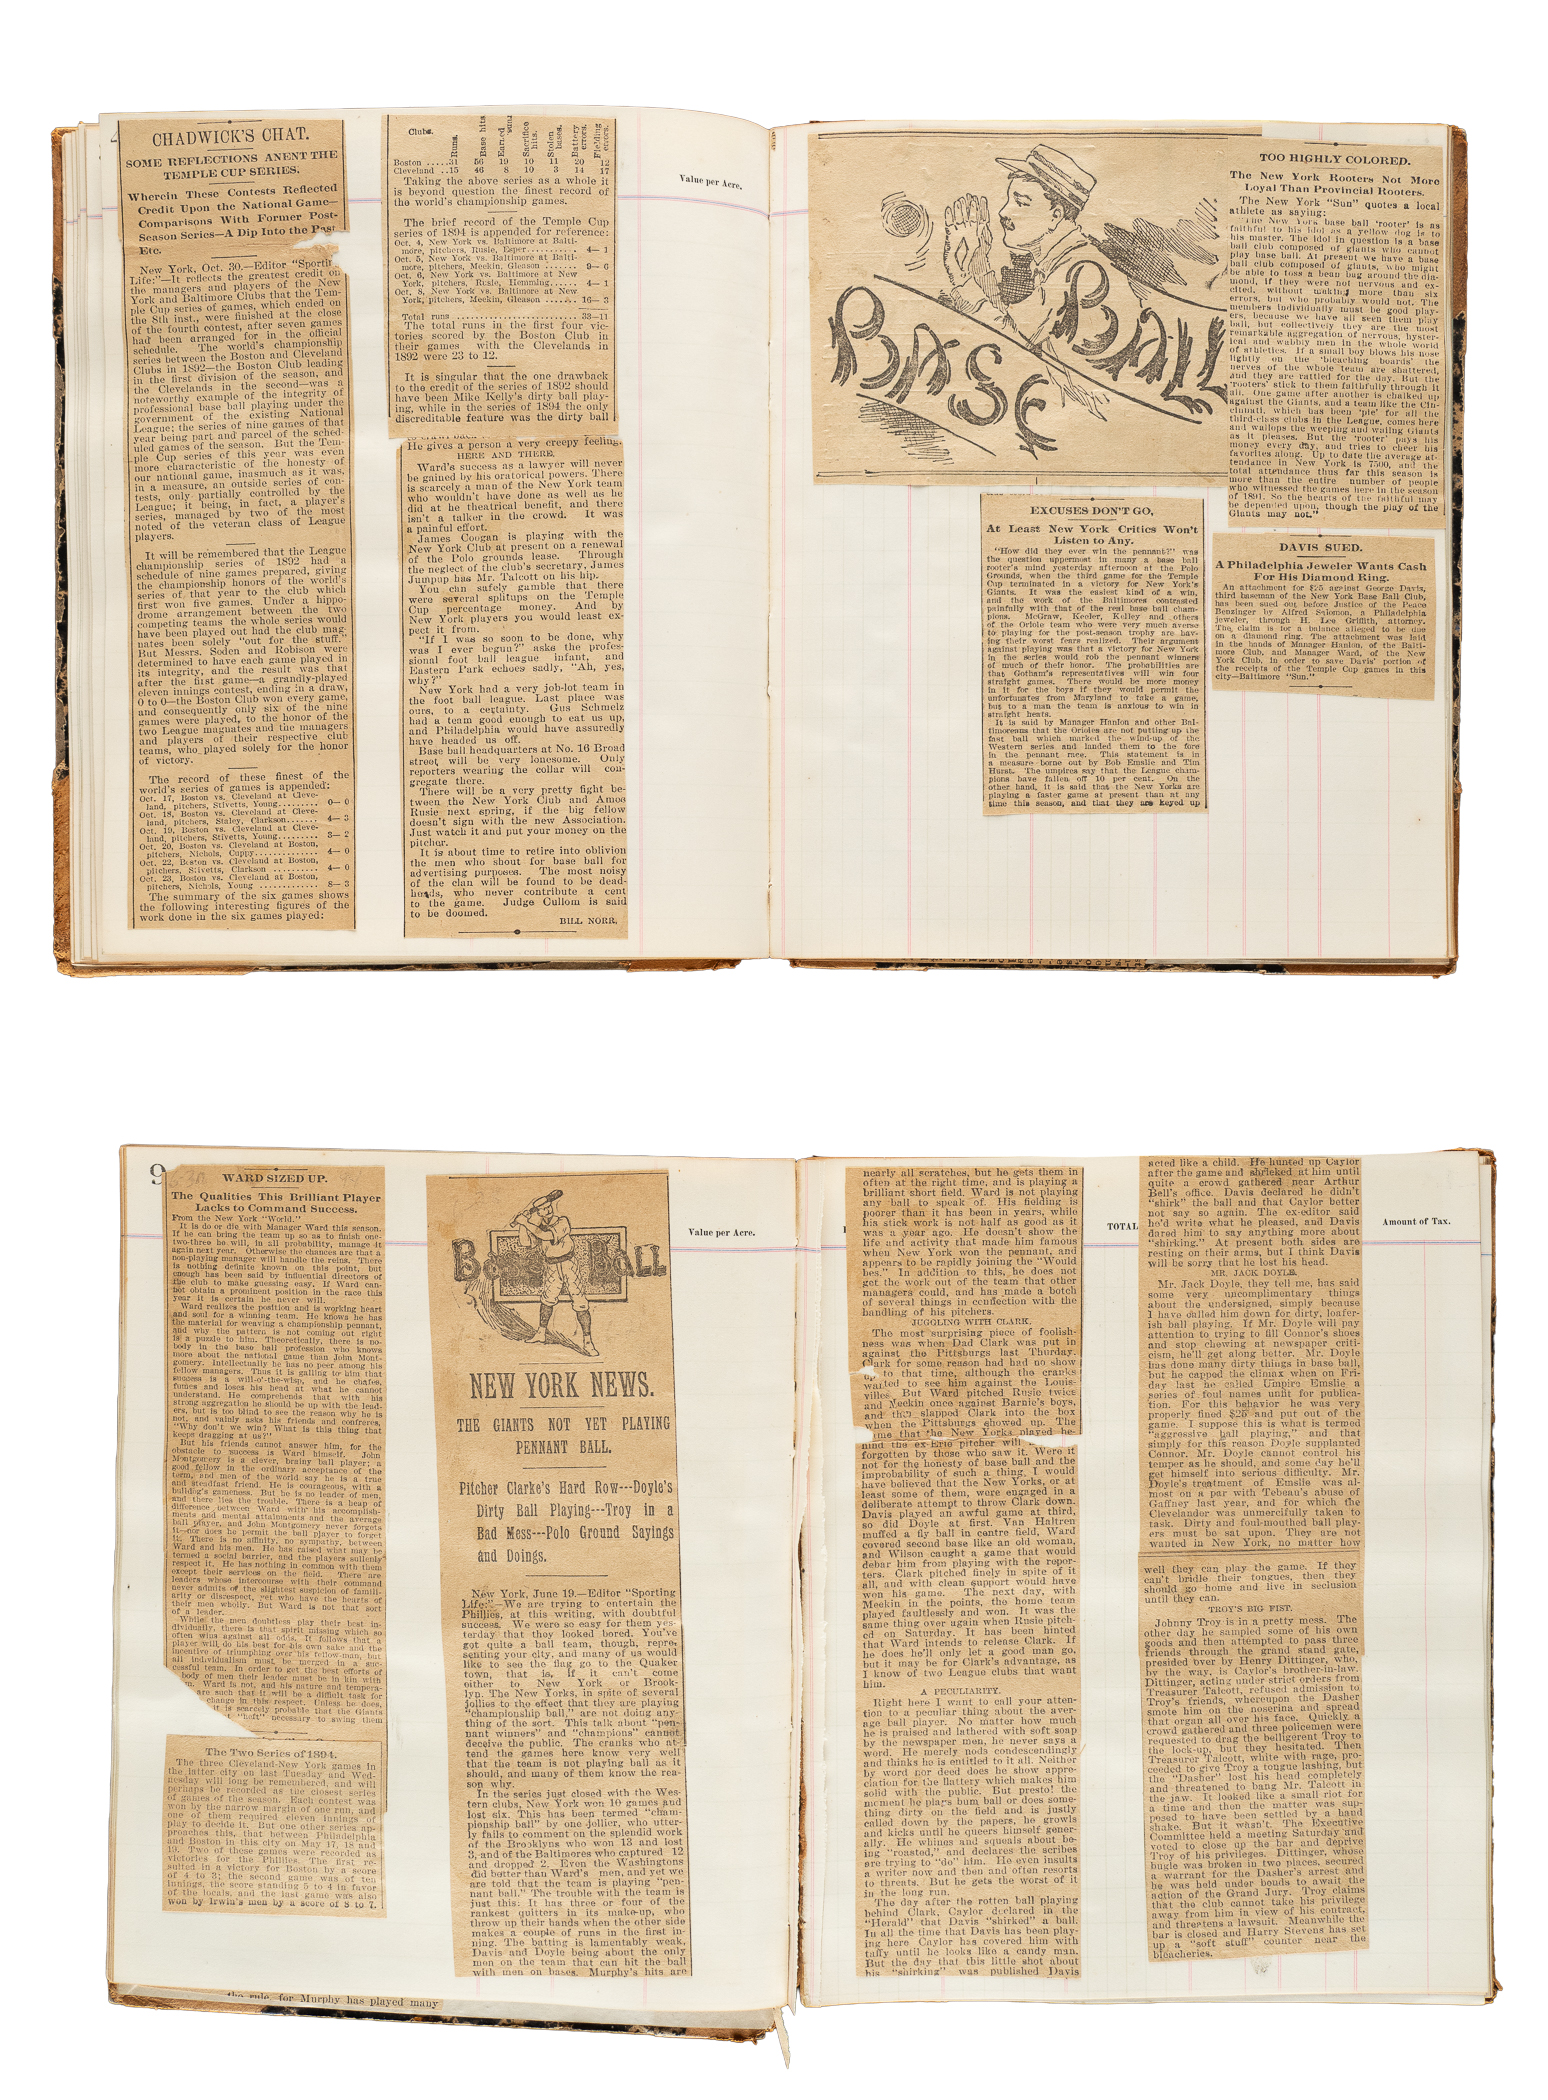 CHADWICK'S CHAT.
SOME REFLECTIONS ANENT THE
TEMPLE CUP SERIES.
Wherein These Contests Reflected
Credit Upon the National Game—
Comparisons With Former Post-
Season Series—A Dip Into the Past
Etc.
New York, Oct. 30.—Editor "Sporting
Life:"—It reflects the greatest credit on
the managers and players of the New
York and Baltimore Clubs that the Tem-
ple Cup series of games, which ended on
the 8th inst., were finished at the close
of the fourth contest, after seven games
had been arranged for in the official
schedule. The world's championship
series between the Boston and Cleveland
Clubs in 1892—the Boston Club leading
in the first division of the season, and
the Clevelands in the second—was a
noteworthy example of the integrity of
professional base ball playing under the
government of the existing National
League; the series of nine games of that
year being part and parcel of the sched-
uled games of the season. But the Tem-
ple Cup series of this year was even
more characteristic of the honesty of
our national game, inasmuch as it was,
in a measure, an outside series of con-
tests, only partially controlled by the
League; it being, in fact, a player's
series, managed by two of the most
noted of the veteran class of League
players.
It will be remembered that the League
championship series of 1892 had a
schedule of nine games prepared, giving
the championship honors of the world's
series of that year to the club which
first won five games. Under a hippo-
drome arrangement between the two
competing teams the whole series would
have been played out had the club mag-
nates been solely "out for the stuff."
But Messrs. Soden and Robison were
determined to have each game played in
its integrity, and the result was that
after the first game—a grandly-played
eleven innings contest, ending in a draw,
0 to 0—the Boston Club won every game,
and consequently only six of the nine
games were played, to the honor of the
two League magnates and the managers
and players of their respective club
teams, who played solely for the honor
of victory.
The record of these finest of the
world's series of games is appended:
Oct. 17, Boston vs. Cleveland at Cleve-
land, pitchers, Stivetts, Young......... 0— 0
Oct. 18, Boston vs. Cleveland at Cleve-
land, pitchers, Staley, Clarkson....... 4— 3
Oct. 19, Boston vs. Cleveland at Cleve-
land, pitchers, Stivetts, Young......... 3— 2
Oct. 20, Boston vs. Cleveland at Boston,
pitchers, Nichols, Cuppy............... 4— 0
Oct. 22, Boston vs. Cleveland at Boston,
pitchers, Stivetts, Clarkson .......... 4— 0
Oct. 23, Boston vs. Cleveland at Boston,
pitchers, Nichols, Young ............. 8— 3
The summary of the six games shows
the following interesting figures of the
work done in the six games played:
Clubs. Runs. Base hits Earned runs Sacrifice hits. Stolen bases. Battery errors. Fielding errors.
Boston .....31 56 19 10 11 20 12
Cleveland ..15 46 8 10 3 14 17
Taking the above series as a whole it
is beyond question the finest record of
the world's championship games.
The brief record of the Temple Cup
series of 1894 is appended for reference:
Oct. 4, New York vs. Baltimore at Balti-
more, pitchers, Rusie, Esper........... 4— 1
Oct. 5, New York vs. Baltimore at Balti-
more, pitchers, Meekin, Gleason ....... 9— 6
Oct. 6, New York vs. Baltimore at New
York, pitchers, Rusie, Hemming...... 4— 1
Oct. 8, New York vs. Baltimore at New
York, pitchers, Meekin, Gleason ...... 16— 3
Total runs ......................... 33—11
The total runs in the first four vic-
tories scored by the Boston Club in
their games with the Clevelands in
1892 were 23 to 12.
It is singular that the one drawback
to the credit of the series of 1892 should
have been Mike Kelly's dirty ball play-
ing, while in the series of 1894 the only
discreditable feature was the dirty ball
He gives a person a very creepy feeling.
HERE AND THERE.
Ward's success as a lawyer will never
be gained by his oratorical powers. There
is scarcely a man of the New York team
who wouldn't have done as well as he
did at he theatrical benefit, and there
isn't a talker in the crowd. It was
a painful effort.
James Coogan is playing with the
New York Club at present on a renewal
of the Polo grounds lease. Through
the neglect of the club's secretary, James
Jumpup has Mr. Talcott on his hip.
You can safely gamble that there
were several splitups on the Temple
Cup percentage money. And by
New York players you would least ex-
pect it from.
"If I was so soon to be done, why
was I ever begun?" asks the profes-
sional foot ball league infant, and
Eastern Park echoes sadly, "Ah, yes,
why?"
New York had a very job-lot team in
the foot ball league. Last place was
ours, to a certainty. Gus Schmelz
had a team good enough to eat us up,
and Philadelphia would have assuredly
have headed us off.
Base ball headquarters at No. 16 Broad
street, will be very lonesome. Only
reporters wearing the collar will con-
gregate there.
There will be a very pretty fight be-
tween the New York Club and Amos
Rusie next spring, if the big fellow
doesn't sign with the new Association.
Just watch it and put your money on the
pitcher.
It is about time to retire into oblivion
the men who shout for base ball for
advertising purposes. The most noisy
of the clan will be found to be dead-
heads, who never contribute a cent
to the game. Judge Cullom is said
to be doomed.
BILL NORR.
Value per Acre.
BASE BALL
TOO HIGHLY COLORED.
The New York Rooters Not More
Loyal Than Provincial Rooters.
The New York "Sun" quotes a local
athlete as saying:
"The New York base ball 'rooter' is as
faithful to his idol as a yellow dog is to
his master. The idol in question is a base
ball club composed of giants who cannot
play base ball. At present we have a base
ball club composed of giants, who might
be able to toss a bean bag around the dia-
mond, if they were not nervous and ex-
cited, without making more than six
errors, but who probably would not. The
members individually must be good play-
ers, because we have all seen them play
ball, but collectively they are the most
remarkable aggregation of nervous, hyster-
ical and wabbly men in the whole world
of athletics. If a small boy blows his nose
lightly on the 'bleaching boards' the
nerves of the whole team are shattered,
and they are rattled for the day. But the
'rooters' stick to them faithfully through it
all. One game after another is chalked up
against the Giants, and a team like the Cin-
cinnati, which has been 'pie' for all the
third-class clubs in the League, comes here
and wallops the weeping and wailing Giants
as it pleases. But the 'rooter' pays his
money every day, and tries to cheer his
favorites along. Up to date the average at-
tendance in New York is 7500, and the
total attendance thus far this season is
more than the entire number of people
who witnessed the games here in the season
of 1891. So the hearts of the faithful may
be depended upon, though the play of the
Giants may not."
EXCUSES DON'T GO,
At Least New York Critics Won't
Listen to Any.
"How did they ever win the pennant?" was
the question uppermost in many a base ball
rooter's mind yesterday afternoon at the Polo
Grounds, when the third game for the Temple
Cup terminated in a victory for New York's
Giants. It was the easiest kind of a win,
and the work of the Baltimores contrasted
painfully with that of the real base ball cham-
pions. McGraw, Keeler, Kelley and others
of the Oriole team who were very much averse
to playing for the post-season trophy are hav-
ing their worst fears realized. Their argument
against playing was that a victory for New York
in the series would rob the pennant winners
of much of their honor. The probabilities are
that Gotham's representatives will win four
straight games. There would be more money
in it for the boys if they would permit the
unfortunates from Maryland to take a game,
but to a man the team is anxious to win in
straight heats.
It is said by Manager Hanlon and other Bal-
timoreans that the Orioles are not putting up the
fast ball which marked the wind-up of the
Western series and landed them to the fore
in the pennant race. This statement is in
a measure borne out by Bob Emslie and Tim
Hurst. The umpires say that the League cham-
pions have fallen off 10 per cent. On the
other hand, it is said that the New Yorks are
playing a faster game at present than at any
time this season, and that they are keyed up
DAVIS SUED.
A Philadelphia Jeweler Wants Cash
For His Diamond Ring.
An attachment for $25 against George Davis,
third baseman of the New York Base Ball Club,
has been sued out before Justice of the Peace
Benzinger by Alfred Salomon, a Philadelphia
jeweler, through H. Lee Griffith, attorney.
The claim is for a balance alleged to be due
on a diamond ring. The attachment was laid
in the hands of Manager Hanlon, of the Balti-
more Club, and Manager Ward, of the New
York Club, in order to save Davis' portion of
the receipts of the Temple Cup games in this
city—Baltimore "Sun."
9
WARD SIZED UP.
The Qualities This Brilliant Player
Lacks to Command Success.
From the New York "World."
It is do or die with Manager Ward this season.
If he can bring the team up so as to finish one-
two-three he will, in all probability, manage it
again next year. Otherwise the chances are that a
non-playing manager will handle the reins. There
is nothing definite known on this point, but
enough has been said by influential directors of
the club to make guessing easy. If Ward can-
not obtain a prominent position in the race this
year it is certain he never will.
Ward realizes the position and is working heart
and soul for a winning team. He knows he has
the material for weaving a championship pennant,
and why the pattern is not coming out right
is a puzzle to him. Theoretically, there is no-
body in the base ball profession who knows
more about the national game than John Mont-
gomery. Intellectually he has no peer among his
fellow managers. Thus it is galling to him that
success is a will-o'-the-wisp, and he chafes,
fumes and loses his head at what he cannot
understand. He comprehends that with his
strong aggregation he should be up with the lead-
ers, but is too blind to see the reason why he is
not, and vainly asks his friends and confreres,
"Why don't we win? What is this thing that
keeps dragging at us?"
But his friends cannot answer him, for the
obstacle to success is Ward himself. John
Montgomery is a clever, brainy ball player; a
good fellow in the ordinary acceptance of the
term, and men of the world say he is a true
and steadfast friend. He is courageous, with a
bulldog's gameness. But he is no leader of men,
and there lies the trouble. There is a heap of
difference between Ward with his accomplish-
ments and mental attainments and the average
ball player, and John Montgomery never forgets
it—nor does he permit the ball player to forget
it. There is no affinity, no sympathy, between
Ward and his men. He has raised what may be
termed a social barrier, and the players sullenly
respect it. He has nothing in common with them
except their services on the field. There are
leaders whose intercourse with their command
never admits of the slightest suspicion of famili-
arity or disrespect, yet who have the hearts of
their men wholly. But Ward is not that sort
of a leader.
While the men doubtless play their best in-
dividually, there is that spirit missing which so
often wins against all odds. It follows that a
player will do his best for his own sake and the
incentive of triumphing over his fellow-man, but
all individualism must be merged in a suc-
cessful team. In order to get the best efforts of
body of men their leader must be in him with
Ward is not, and his nature and tempera-
are such that it will be a difficult task for
change in this respect. Unless he does,
it is scarcely probable that the Giants
"heft" necessary to swing them
The Two Series of 1894.
The three Cleveland-New York games in
the latter city on last Tuesday and Wed-
nesday will long be remembered, and will
perhaps be recorded as the closest series
of games of the season. Each contest was
won by the narrow margin of one run, and
one of them required eleven innings of
play to decide it. But one other series ap-
proaches this, that between Philadelphia
and Boston in this city on May 17, 18 and
19. Two of these games were recorded as
victories for the Phillies. The first re-
sulted in a victory for Boston by a score
of 4 to 3; the second game was of ten
innings, the score standing 5 to 4 in favor
of the locals, and the last game was also
won by Irwin's men by a score of 8 to 7.
the rule, for Murphy has played many
Base Ball
NEW YORK NEWS.
THE GIANTS NOT YET PLAYING
PENNANT BALL.
Pitcher Clarke's Hard Row---Doyle's
Dirty Ball Playing---Troy in a
Bad Mess---Polo Ground Sayings
and Doings.
New York, June 19.—Editor "Sporting
Life:"—We are trying to entertain the
Phillies, at this writing, with doubtful
success. We were so easy for them yes-
terday that they looked bored. You've
got quite a ball team, though, repre-
senting your city, and many of us would
like to see the flag go to the Quaker
town, that is, if it can't come
either to New York or Brook-
lyn. The New Yorks, in spite of several
jollies to the effect that they are playing
"championship ball," are not doing any-
thing of the sort. This talk about "pen-
nant winners" and "champions" cannot
deceive the public. The cranks who at-
tend the games here know very well
that the team is not playing ball as it
should, and many of them know the rea-
son why.
In the series just closed with the Wes-
tern clubs, New York won 10 games and
lost six. This has been termed "cham-
pionship ball" by one jollier, who utter-
ly fails to comment on the splendid work
of the Brooklyns who won 13 and lost
3, and of the Baltimores who captured 12
and dropped 2. Even the Washingtons
did better than Ward's men, and yet we
are told that the team is playing "pen-
nant ball." The trouble with the team is
just this: It has three or four of the
rankest quitters in its make-up, who
throw up their hands when the other side
makes a couple of runs in the first in-
ning. The batting is lamentably weak,
Davis and Doyle being about the only
men on the team that can hit the ball
with men on bases. Murphy's hits are
Value per Acre.
nearly all scratches, but he gets them in
often at the right time, and is playing a
brilliant short field. Ward is not playing
any ball to speak of. His fielding is
poorer than it has been in years, while
his stick work is not half as good as it
was a year ago. He doesn't show the
life and activity that made him famous
when New York won the pennant, and
appears to be rapidly joining the "Would
bes." In addition to this, he does not
get the work out of the team that other
managers could, and has made a botch
of several things in connection with the
handling of his pitchers.
JUGGLING WITH CLARK.
The most surprising piece of foolish-
ness was when Dad Clark was put in
against the Pittsburgs last Thurday.
Clark for some reason had had no show
up to that time, although the cranks
wanted to see him against the Louis-
villes. But Ward pitched Rusie twice
and Meekin once against Barnie's boys,
and then slapped Clark into the box
when the Pittsburgs showed up. The
game that the New Yorks played be-
hind the ex-Erie pitcher will
forgotten by those who saw it. Were it
not for the honesty of base ball and the
improbability of such a thing, I would
have believed that the New Yorks, or at
least some of them, were engaged in a
deliberate attempt to throw Clark down.
Davis played an awful game at third,
so did Doyle at first. Van Haltren
muffed a fly ball in centre field, Ward
covered second base like an old woman,
and Wilson caught a game that would
debar him from playing with the repor-
ters. Clark pitched finely in spite of it
all, and with clean support would have
won his game. The next day, with
Meekin in the points, the home team
played faultlessly and won. It was the
same thing over again when Rusie pitch-
ed on Saturday. It has been hinted
that Ward intends to release Clark. If
he does he'll only let a good man go,
but it may be for Clark's advantage, as
I know of two League clubs that want
him.
A PECULIARITY.
Right here I want to call your atten-
tion to a peculiar thing about the aver-
age ball player. No matter how much
he is praised and lathered with soft soap
by the newspaper men, he never says a
word. He merely nods condescendingly
and thinks he is entitled to it all. Neither
by word nor deed does he show appre-
ciation for the flattery which makes him
solid with the public. But presto! the
moment he plays bum ball or does some-
thing dirty on the field and is justly
called down by the papers, he growls
and kicks until he queers himself gener-
ally. He whines and squeals about be-
ing "roasted," and declares the scribes
are trying to "do" him. He even insults
a writer now and then and often resorts
to threats. But he gets the worst of it
in the long run.
The day after the rotten ball playing
behind Clark, Caylor declared in the
"Herald" that Davis "shirked" a ball.
In all the time that Davis has been play-
ing here Caylor has covered him with
taffy until he looks like a candy man.
But the day that this little shot about
his "shirking" was published Davis
TOTAL
acted like a child. He hunted up Caylor
after the game and shrieked at him until
quite a crowd gathered near Arthur
Bell's office. Davis declared he didn't
"shirk" the ball and that Caylor better
not say so again. The ex-editor said
he'd write what he pleased, and Davis
dared him to say anything more about
"shirking." At present both sides are
resting on their arms, but I think Davis
will be sorry that he lost his head.
MR. JACK DOYLE.
Mr. Jack Doyle, they tell me, has said
some very uncomplimentary things
about the undersigned, simply because
I have called him down for dirty, loafer-
ish ball playing. If Mr. Doyle will pay
attention to trying to fill Connor's shoes
and stop chewing at newspaper criti-
cism, he'll get along better. Mr. Doyle
has done many dirty things in base ball,
but he capped the climax when on Fri-
day last he called Umpire Emslie a
series of foul names unfit for publica-
tion. For this behavior he was very
properly fined $25 and put out of the
game. I suppose this is what is termed
"aggressive ball playing," and that
simply for this reason Doyle supplanted
Connor. Mr. Doyle cannot control his
temper as he should, and some day he'll
get himself into serious difficulty. Mr.
Doyle's treatment of Emslie was al-
most on a par with Tebeau's abuse of
Gaffney last year, and for which the
Clevelander was unmercifully taken to
task. Dirty and foul-mouthed ball play-
ers must be sat upon. They are not
wanted in New York, no matter how
well they can play the game. If they
can't bridle their tongues, then they
should go home and live in seclusion
until they can.
TROY'S BIG FIST.
Johnny Troy is in a pretty mess. The
other day he sampled some of his own
goods and then attempted to pass three
friends through the grand stand gate,
presided over by Henry Dittinger, who,
by the way, is Caylor's brother-in-law.
Dittinger, acting under strict orders from
Treasurer Talcott, refused admission to
Troy's friends, whereupon the Dasher
smote him on the noserina and spread
that organ all over his face. Quickly a
crowd gathered and three policemen were
requested to drag the belligerent Troy to
the lock-up, but they hesitated. Then
Treasurer Talcott, white with rage, pro-
ceeded to give Troy a tongue lashing, but
the "Dasher" lost his head completely
and threatened to bang Mr. Talcott in
the jaw. It looked like a small riot for
a time and then the matter was sup-
posed to have been settled by a hand
shake. But it wasn't. The Executive
Committee held a meeting Saturday and
voted to close up the bar and deprive
Troy of his privileges. Dittinger, whose
bugle was broken in two places, secured
a warrant for the Dasher's arrest and
he was held under bonds to await the
action of the Grand Jury. Troy claims
that the club cannot take his privilege
away from him in view of his contract,
and threatens a lawsuit. Meanwhile the
bar is closed and Harry Stevens has set
up a "soft stuff" counter near the
bleacheries.
Amount of Tax.